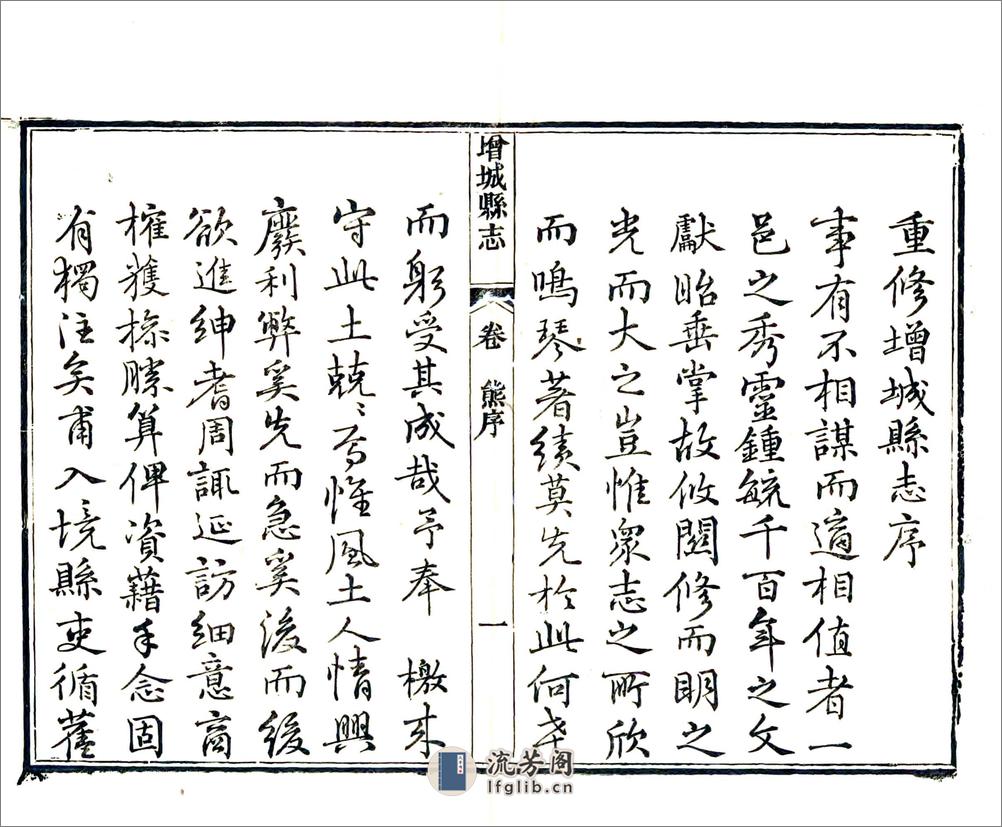 重修增城縣志序
事有不相謀而適相值者一
邑之秀靈鍾毓千百年之文
獻昭垂掌故攸關修而明之
光而大之豈惟衆志之所欣
而鳴琴著績莫先於此何幸
增城縣志
卷
熊序
一
而躬受其成哉予奉 檄來
守此土兢〻焉惟風土人情興
廢利弊奚先而急奚後而緩
欲進紳耆周諏延訪細意商
榷獲操勝算俾資藉手念固
有獨注矣甫入境縣吏循舊
流芳阁
lfglib.cn